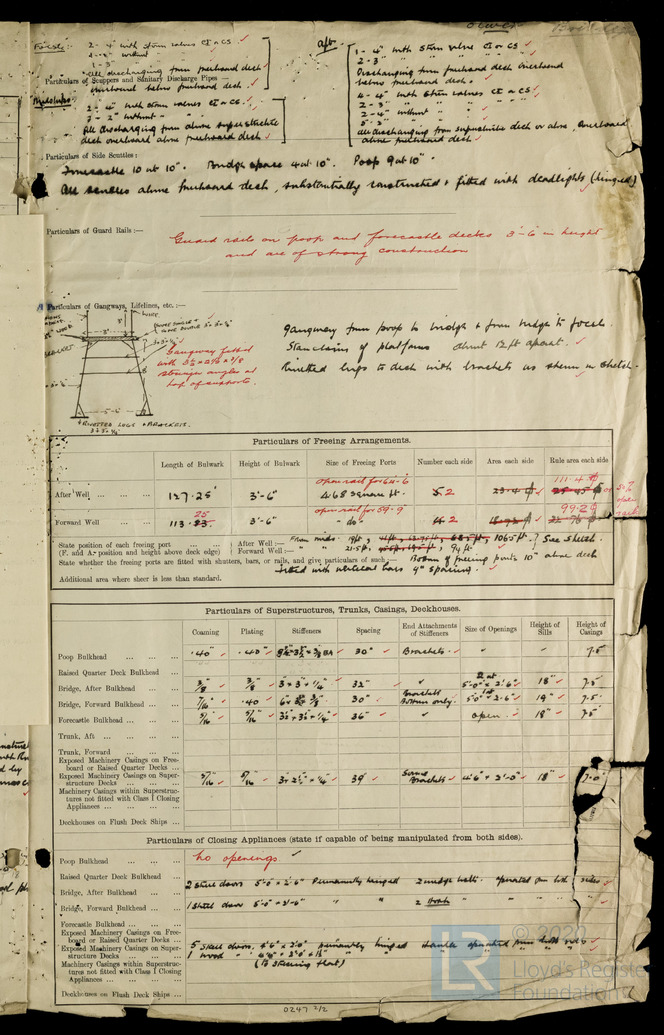 Forecstle:
2 - 4" with storm valves CI or CS
2 - 2" without
1 - 3"
Particulars of Scuppers and Sanitary Discharge Pipes —
All discharging from freeboard deck
overboard below freeboard deck.
2 - 4" with storm valves CI or CS.
7 - 2" without
All discharging from above superstructure
deck overboard above freeboard deck
aft
1 - 4" with storm valve CI or CS
2 - 3"
Discharging from freeboard deck overboard
below freeboard deck.
4 - 4" with storm valves CI or CS
2 - 3" " " " "
2 - 4" without
5 - 2"
All discharging from superstructure deck or above, overboard
above freeboard deck
Particulars of Side Scuttles :—
Forecastle 10 at 10". Bridge space 4 at 10". Poop 9 at 10"
All scuttles above freeboard deck, substantially constructed & fitted with deadlights (hinged)
Particulars of Guard Rails :—
Guard rails on poop and forecastle decks 3'-6" in height
and are of strong construction
Particulars of Gangways, Lifelines, etc. :—
Gangway fitted
with 3½ x 2½ x 3/8
stringer angles at
top of supports.
5'-6"
RIVETTED LUGS & BRACKETS.
Gangway from poop to bridge & from bridge to focsle.
Stanchions of platforms about 12 ft apart.
Rivetted lugs to deck with brackets as shewn in sketch.
Particulars of Freeing Arrangements.
Length of Bulwark Height of Bulwark Size of Freeing Ports Number each side Area each side Rule area each side
open rail for 64'-6 111.4
After Well 127.25' 3'-6" 4.68 square ft. 5 2 23.4 25.45
open rail for 59'-9 99.2
Forward Well 113.83 25 3'-6" do 4 2 18.72 22.76
50% open rail
State position of each freeing port After Well :— From mids. 19 ft, 106.5 ft. See sketch.
(F. and A. position and height above deck edge) Forward Well :— " " 21.5 ft, 94 ft
State whether the freeing ports are fitted with shutters, bars, or rails, and give particulars of such :— Bottom of freeing ports 10" above deck
Fitted with vertical bars 9" spacing.
Additional area where sheer is less than standard.
Particulars of Superstructures, Trunks, Casings, Deckhouses.
Coaming Plating Stiffeners Spacing End Attachments of Stiffeners Size of Openings Height of Sills Height of Casings
Poop Bulkhead .40" .40" 30" Brackets. " " 7.5
Raised Quarter Deck Bulkhead
Bridge, After Bulkhead 3/8 3/8 3 x 3 x ¼" 32" " 2 at 5'-0" x 2'-6" 18" 7.5
Bridge, Forward Bulkhead 7/16 .40 30" Brackets Bottom only. 1 at 5'-0" x 2'-6" 19" 7.5
Forecastle Bulkhead 5/16 5/16 3½ x 3½ x ¼" 36" " open. 18" 7.5
Trunk, Aft
Trunk, Forward
Exposed Machinery Casings on Freeboard or Raised Quarter Decks
Exposed Machinery Casings on Superstructure Decks 5/16 5/16 3 x 2½ x ¼ 39" Some Brackets 4'-6" x 2'-0" 18" 7'-0"
Machinery Casings within Superstructures not fitted with Class 1 Closing Appliances
Deckhouses on Flush Deck Ships
Particulars of Closing Appliances (state if capable of being manipulated from both sides).
Poop Bulkhead No openings.
Raised Quarter Deck Bulkhead
Bridge, After Bulkhead 2 steel doors 5'-0" x 2'-6" Permanently hinged operated from both sides
Bridge, Forward Bulkhead 1 steel door 5'-0" x 2'-6" " " 2 " " " "
Forecastle Bulkhead
Exposed Machinery Casings on Freeboard or Raised Quarter Decks
Exposed Machinery Casings on Superstructure Decks 5 steel doors, 4'-6" x 2'-0" permanently hinged handles operated from both sides
1 wood " "
Machinery Casings within Superstructures not fitted with Class 1 Closing Appliances
Deckhouses on Flush Deck Ships
© 2020
LR
Lloyd's Register
Foundation
0247 2/2